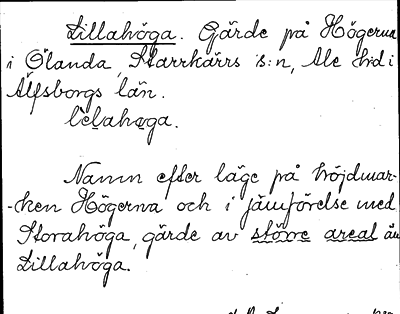 Lillahöga. Gärde på Högerna
i Ölanda, Starrkärrs s:n, Ale hd i
Älfsborgs län.
lelahøga.
Namn efter läge på höjdmar-
-ken Högerna och i jämförelse med
Storahöga, gärde av större areal än
Lillahöga.